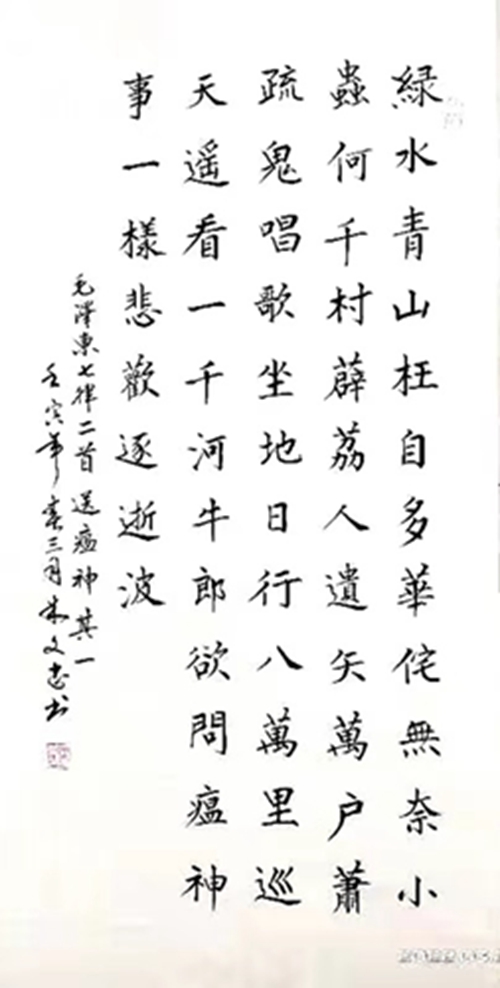 緑水青山枉自多華佗無奈小
蟲何千村薜荔人遺矢萬户蕭
疏鬼唱歌坐地日行八萬里巡
天遥看一千河牛郎欲問瘟神
事一樣悲歡逐逝波
毛澤東七律二首 送瘟神其一
壬寅年春三月朱文志书